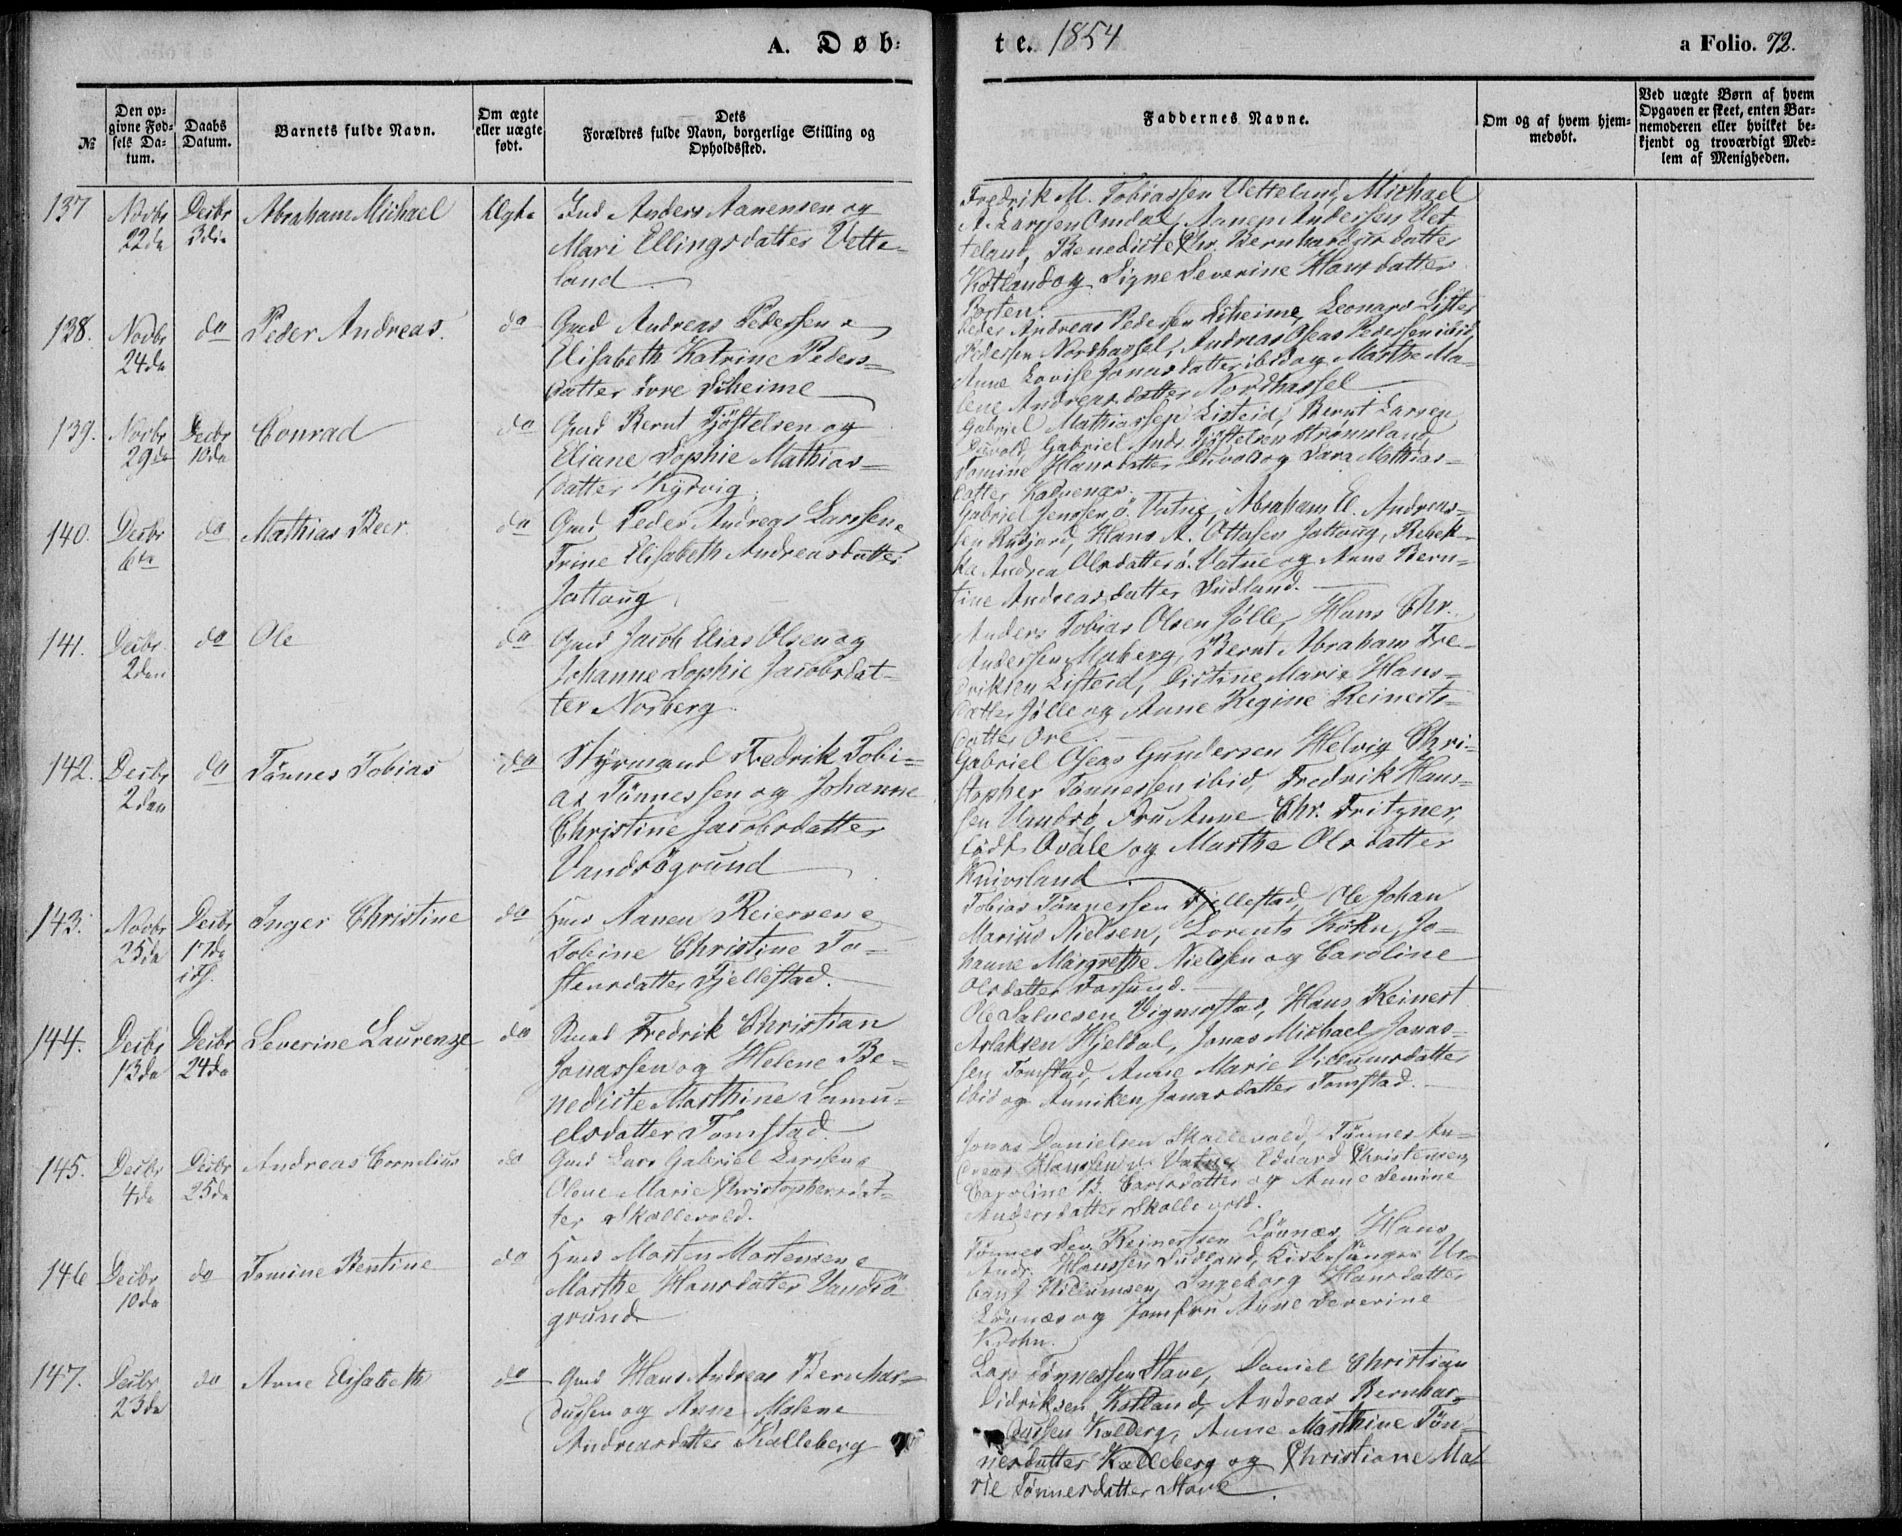 A. Døb-
te. 1854
a Folio. 72.
№
Den op-
givne Fød-
sels Da-
tum.
Daabs
Datum.
Barnets fulde Navn.
Om ægte
eller uægte
født.
Dets
Forældres fulde Navn, borgerlige Stilling og
Opholdssted.
Faddernes Navne.
Om og af hvem hjem-
medøbt.
Ved uægte Børn af hvem
Opgaven er skeet, enten Bar-
nemoderen eller hvilket be-
kjendt og troværdigt Med-
lem af Menigheden.
137
Novbr
22de
Decbr
3die
Abraham Michael
Ægte
Anders Aanensen og
Mari Ellingsdatter Vette-
land
Fredrik M. Tobiassen Vetteland, Michael
A. Larssen Omdal, Aanen Andersen Vet
teland, Benedicte Chr. Bernhardusdatter
Kotland og Signe Severine Hansdatter
138.
Novbr
24de
do
Peder Andreas.
do
Gmd Andreas Pedersen &
Elisabeth Katrine Peders-
datter Øvre Skeime
Peder Andreas Pedersen Skeime, Leonard Lister
Pedersen Nordhassel, Andreas Oseas Pedersen ibid,
Anne Lovise Jonasdatter ibid og Marthe Ma-
lene Andreasdatter Nordhassel
139.
Novbr
29de
Decbr
10de
Conrad
do
Gmd Bernt Tjøstelsen og
Eliane Sophie Mathias-
datter Nysvig.
Gabriel Mathiassen Listeid, Bernt Larsen
Duvold, Gabriel Andr. Tjøstelsen Strømsland,
Tomine Hansdatter Duvold og Sara Mathias-
datter Kalvenæs.
140.
Decbr
6te
do
Mathias Beer.
do
Gmd Peder Andreas Larssen &
Trine Elisabeth Andreasdatter
Jøllaug
Gabriel Jenssen ø. Vatne, Abraham E. Andreas-
sen Rudjord, Hans A. Ottosen Jøllaug, Rebek-
ka Andrea Olsdatter ø. Vatne og Anne Bern-
tine Andreasdatter Sudland.
141.
Decbr
2den
do
Ole
do
Gmd Jacob Elias Olsen og
Johanne Sophie Jacobsdat-
ter Norberg
Anders Tobias Olsen Jølle, Hans Chr.
Andersen Maberg, Bernt Abraham Fre-
driksen Listeid, Distine Marie Hans-
datter Jølle og Anne Regine Reinerts-
datter Ore.
142.
Decbr
2den
do
Tønnes Tobias
do
Styrmand Fredrik Tobi-
as Tønnessen og Johanne
Christine Jacobsdatter
Vandsøgrund
Gabriel Oseas Gundersen Helvig Chri-
stopher Tønnessen ibid, Fredrik Hans-
sen Vandsø, Fru Anne Chr. Fritzner,
født Qvale og Marthe Olsdatter
Knivsland
143.
Novbr
25de
Decbr
17de
Inger Christine
do
Hmd Aanen Reiersen &
Tobine Christine To-
stensdatter Fjellestad.
Tobias Tønnessen Fjellestad, Ole Johan
Marius Nielsen, Lorents Krohn, Jo-
hanne Margrethe Nielsen og Caroline
Olsdatter Farsund.
144.
Decbr
13de
Decbr
24de
Severine Laurenze
do
Fredrik Christian
Jonassen og Helene Be-
nedicte Marthine Samu-
elsdatter Tomstad.
Ole Salvesen Vigmostad, Hans Reinert
Aslaksen Hjeldal, Jonas Michael Jonas-
sen Tomstad, Anne Marie Villumsdatter
ibid og Anniken Jonasdatter Tomstad.
145.
Decbr
4de
Decbr
25de
Andreas Cornelius
do
Gmd Lars Gabriel Larssen &
Olene Marie Christophersdat-
ter Skallevold.
Jonas Danielsen Skallevold, Tønnes An-
dreas Hanssen v. Vatne, Edvard Christensen,
Caroline B. Larsdatter og Anne Semine
Andersdatter Skallevold.
146
Decbr
10de
do
Tomine Bentine
do
Hmd Morten Mortensen &
Marthe Hansdatter Vandsø
grund
Tønnes Sev. Reinertsen Lønnæs, Hans
Andr. Hanssen Sudland, Kirkesanger Ur-
bant Willumsen, Ingeborg Hansdatter
Lønnæs og Jomfru Anne Severine
Krohn.
147.
Decbr
23de
do
Anne Elisabeth
do
Gmd Hans Andreas Bernhar-
dussen og Anne Malene
Andreasdatter Kalleberg
Lars Tønnessen Stave, Daniel Christian
Didriksen Kotland, Andreas Bernhar-
dussen Kalberg, Anne Marthine Tøn-
nesdatter Kalleberg og Christiane Ma-
rie Tønnesdatter Stave.